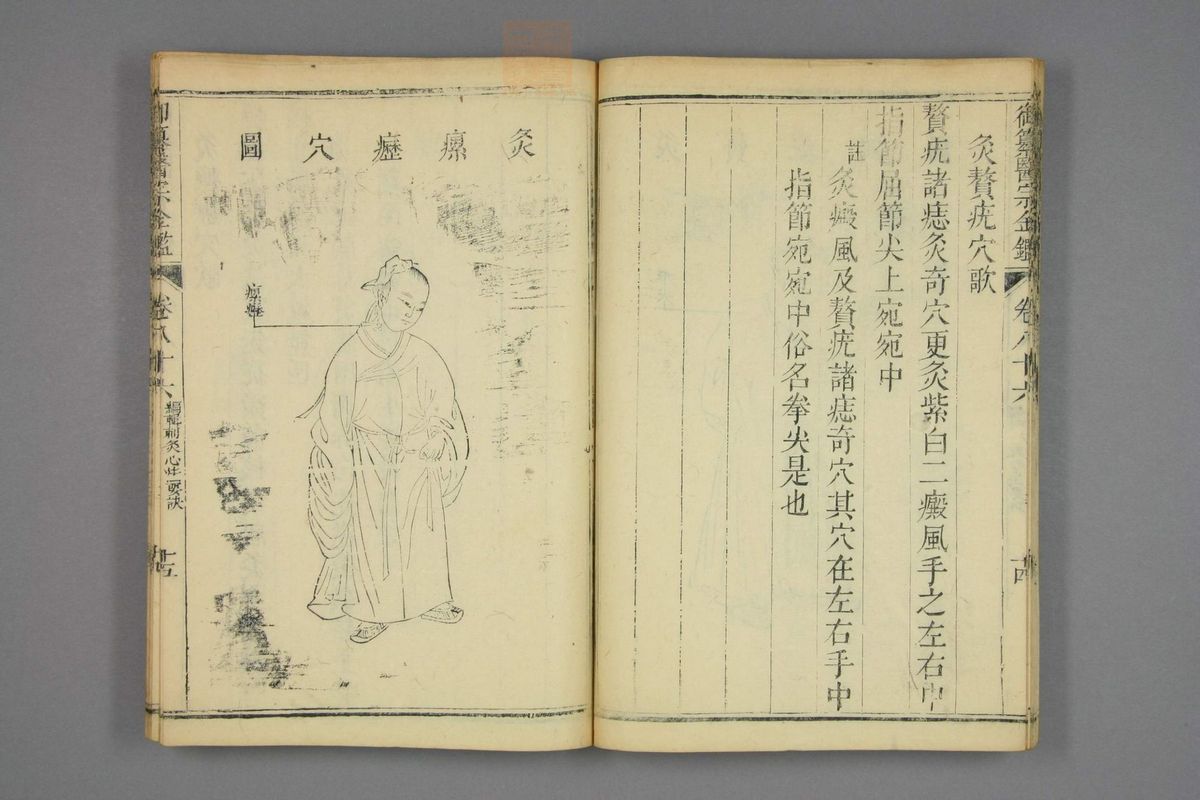 御纂醫宗金鑑 卷八十六 十四
灸贅疣穴歌
贅疣諸痣灸奇穴更灸紫白二癜風手之左右中
指節屈節尖上宛宛中
註
灸癜風及贅疣諸痣奇穴其穴在左右手中
指節宛宛中俗名拳尖是也
灸瘰癧穴圖
瘰癧
御纂醫宗金鑑 卷八十六 編輯刺灸心法要訣 十五